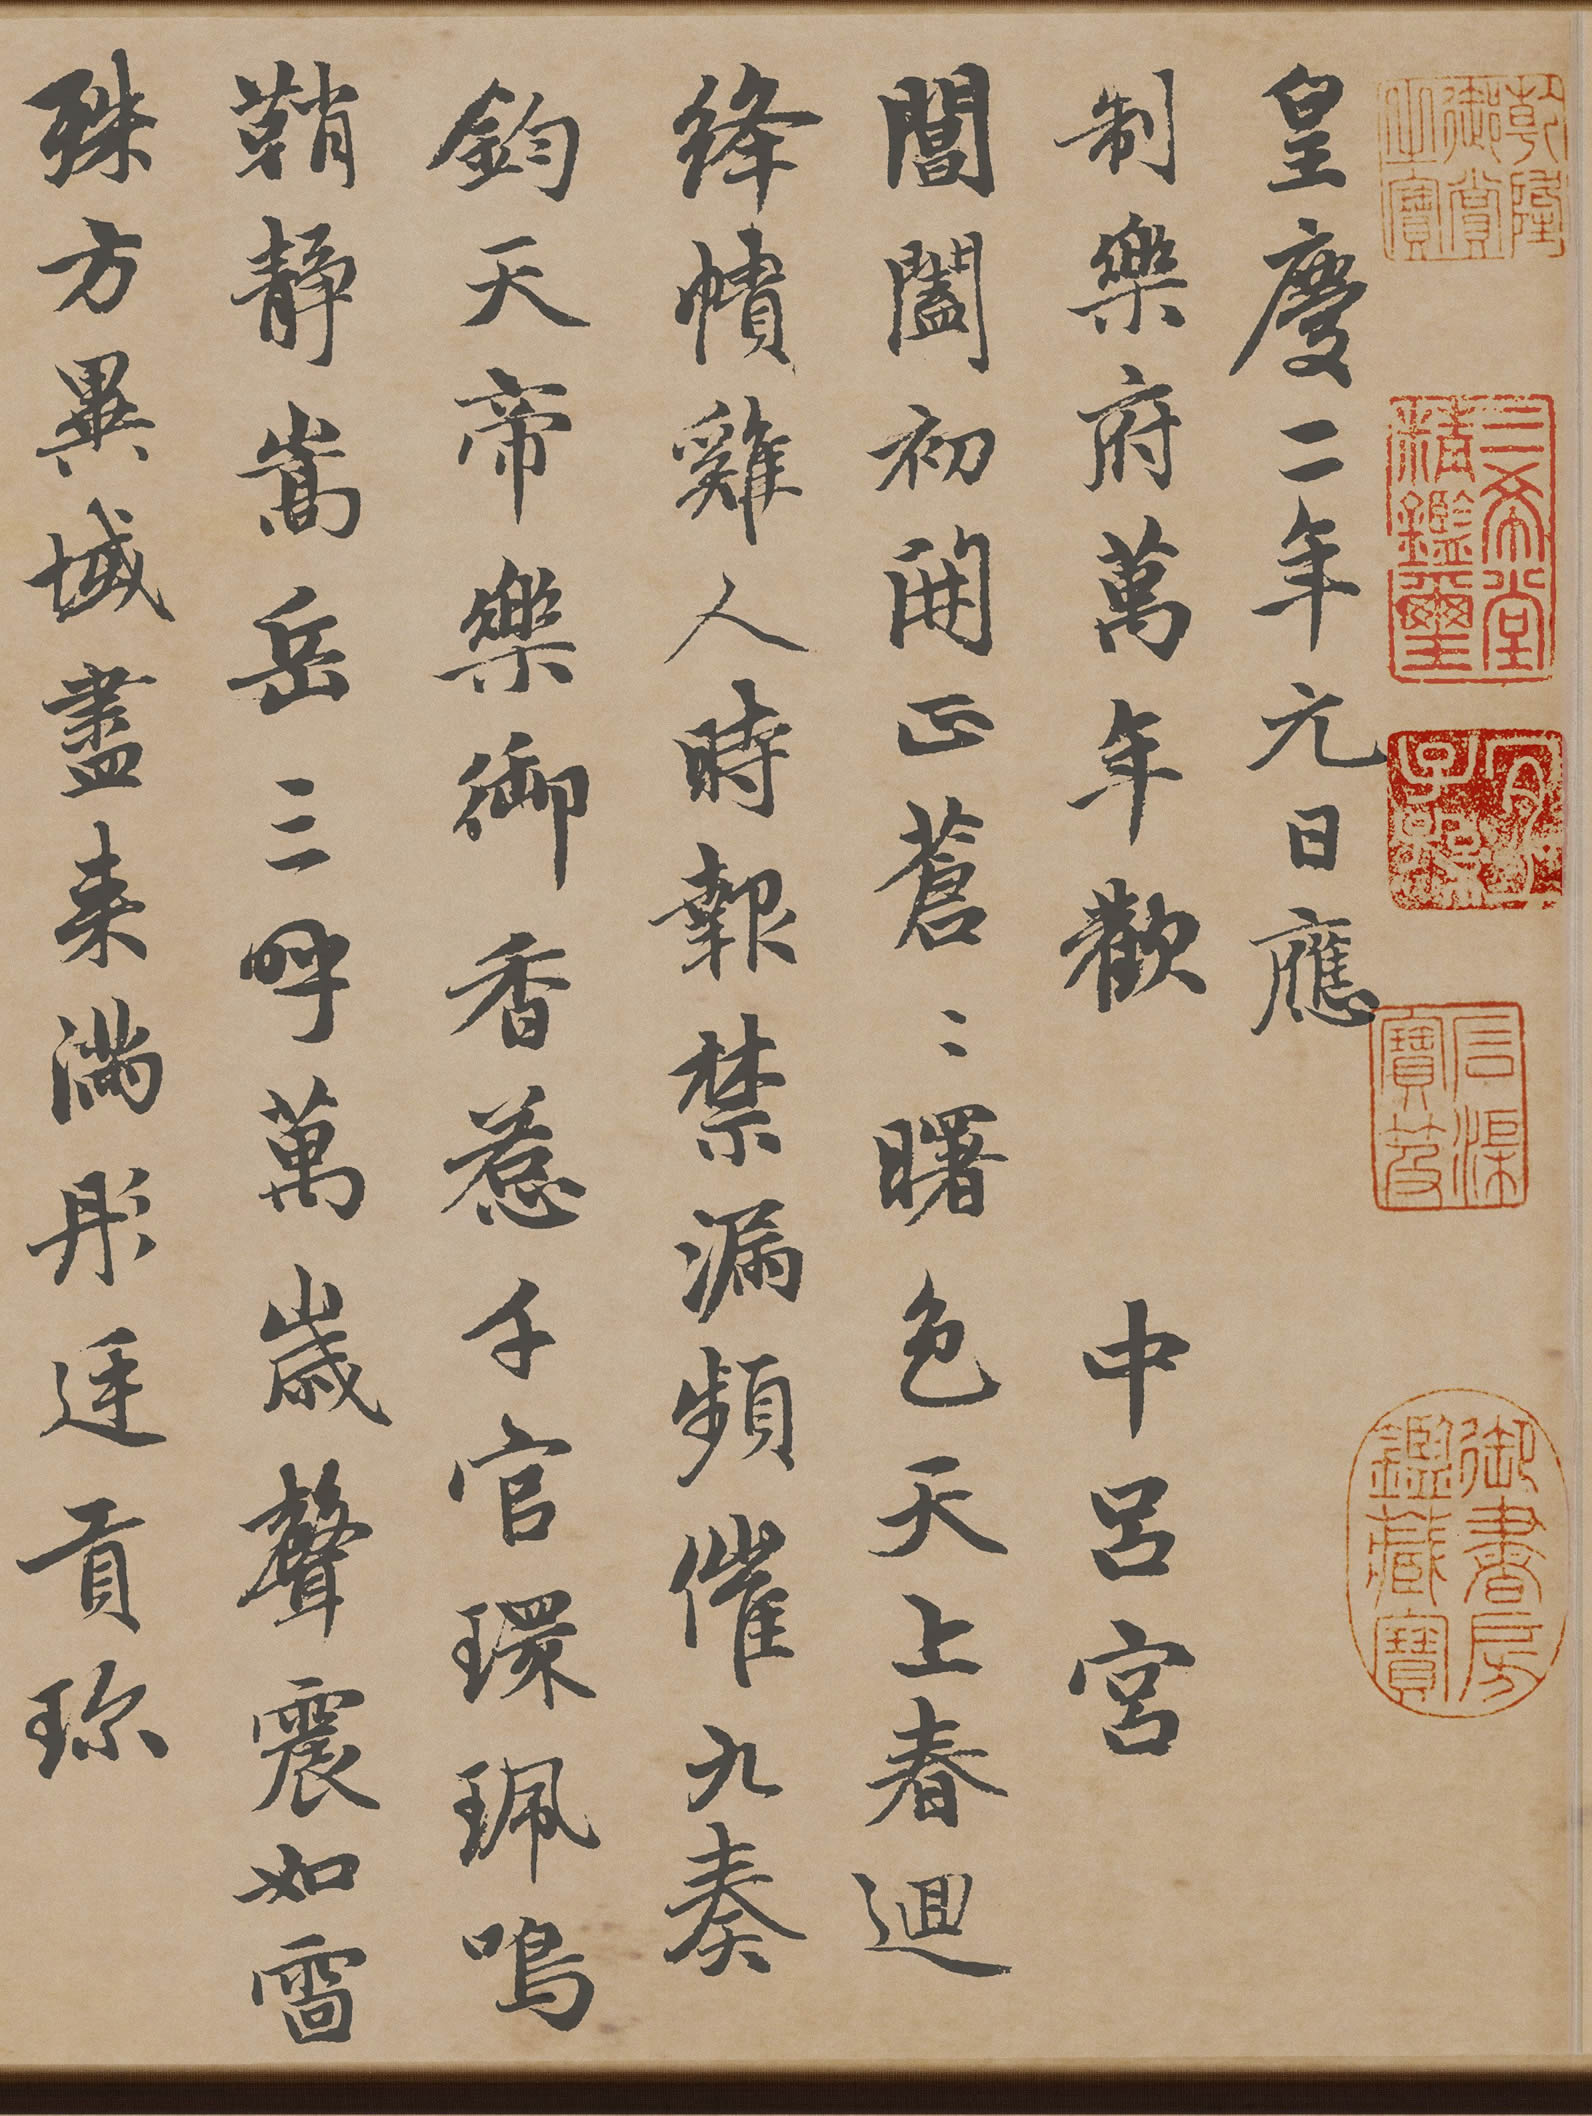 乾隆御賞之寶
三希堂精鑑璽
宜子孫
石渠寶笈
御書房鑑藏寶
皇慶二年元日應
制樂府萬年歡　中呂宮
閶闔初開正蒼〻曙色天上春迴
絳幘雞人時報禁漏頻催九奏
鈞天帝樂御香惹千官環珮鳴
鞘靜嵩岳三呼萬歲聲震如雷
殊方異域盡来滿彤廷貢珎